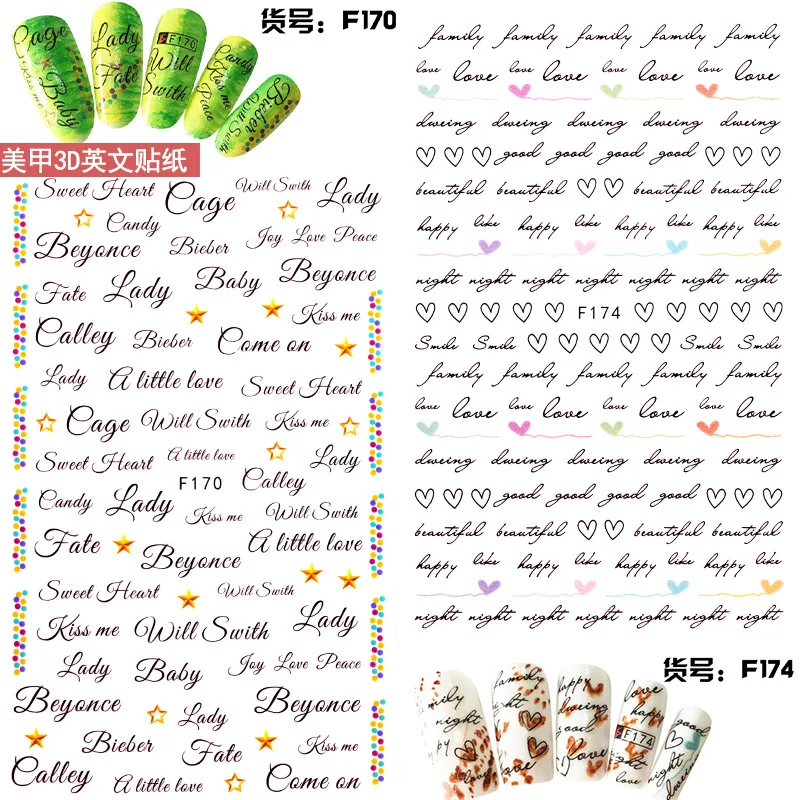 货号：F170
Cage Lady F170 Candy
Fate Will Kiss me Bieber
Kiss me Baby Swith Peace Will Swith
美甲3D英文贴纸
Sweet Heart Cage Will Swith Lady
Candy
Beyonce Bieber Joy Love Peace
Fate Lady Baby Beyonce
Kiss me
Calley Bieber Come on
Lady A little love Sweet Heart
Cage Will Swith Kiss me
Sweet Heart A little love Lady
F170 Calley
Candy Lady Kiss me Will Swith
Fate Beyonce A little love
Sweet Heart Will Swith
Kiss me Will Swith Lady
Lady Baby Joy Love Peace
Beyonce Lady Beyonce
Bieber Fate Kiss me
Calley A little love Come on
family family family family family
love love love love love love love love
dweing dweing dweing dweing dweing
good good good good
beautiful beautiful beautiful beautiful
happy like happy like happy like happy like
night night night night night night night
F174
Smile Smile Smile Smile
family family family family family
love love love love love love love love
dweing dweing dweing dweing dweing
good good good good
beautiful beautiful beautiful beautiful
happy like happy like happy like happy like
night night night night night night night
货号：F174
family family happy love good
night night dweing happy
happy good F174 night
love love love night dweing
love